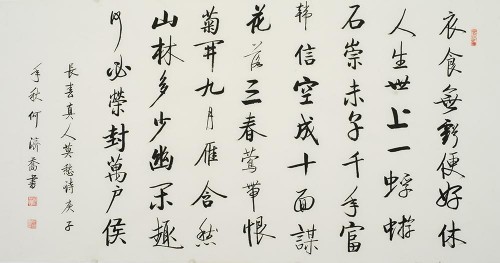 衣食無虧便好休
人生世上一蜉蝣
石崇未享千年富
韓信空成十面謀
花落三春鶯帶恨
菊開九月雁含愁
山林多少幽閑趣
何必榮封萬戶侯
長春真人莫愁詩庚子
年秋何濟喬書